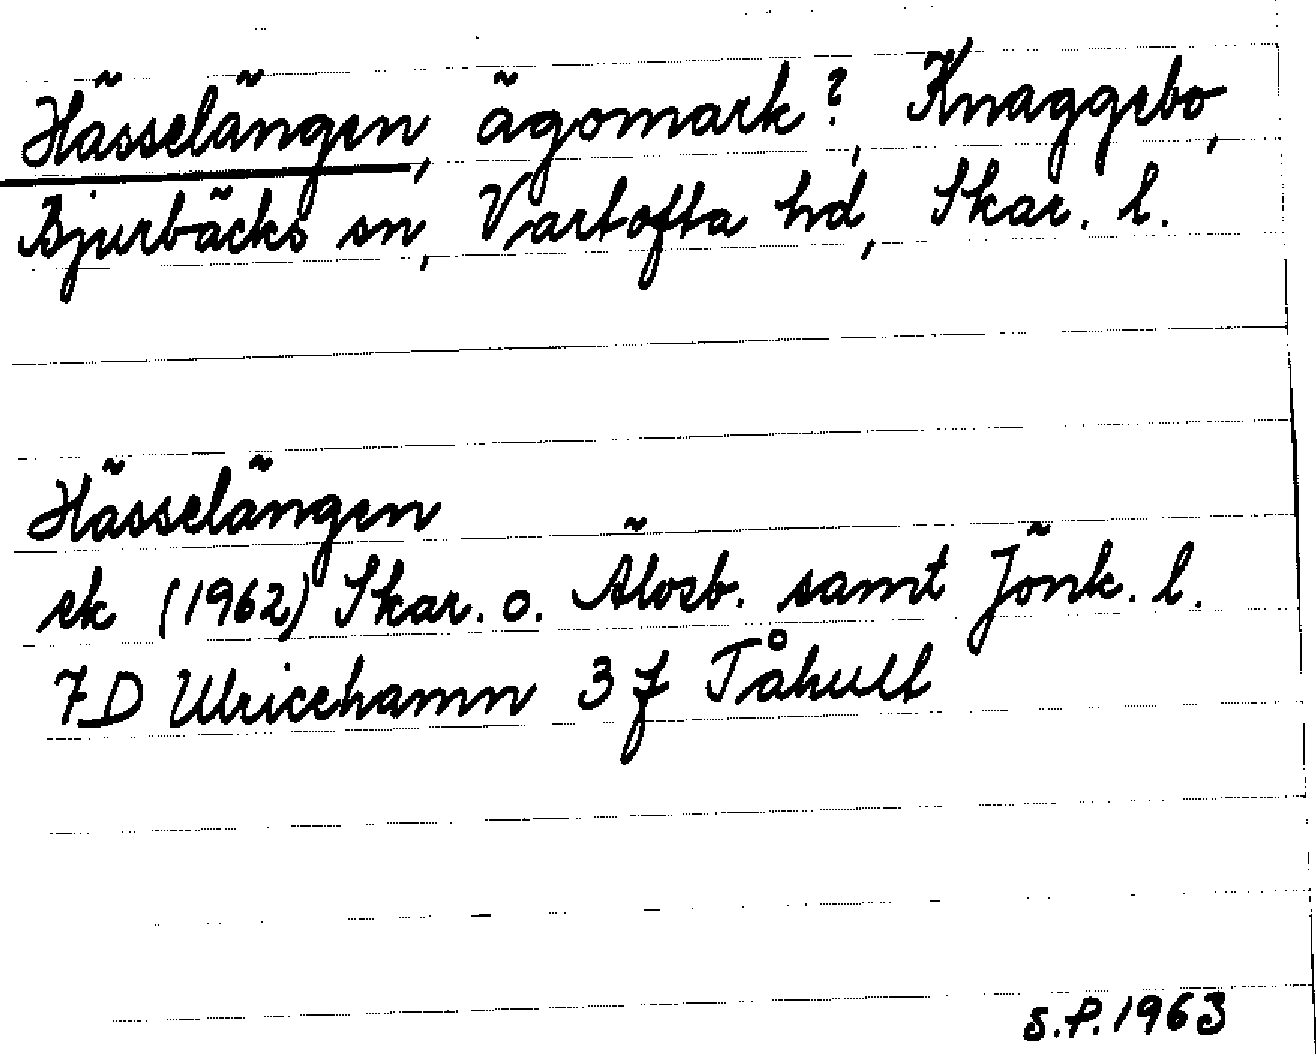 Hässelängen, ägomark?, Knaggebo,
Bjurbäcks sn, Vartofta hd, Skar. l.
Hässelängen
ek (1962) Skar. o. Älvsb. samt Jönk. l.
7D Ulricehamn 3 f Tåhult
S.P. 1963